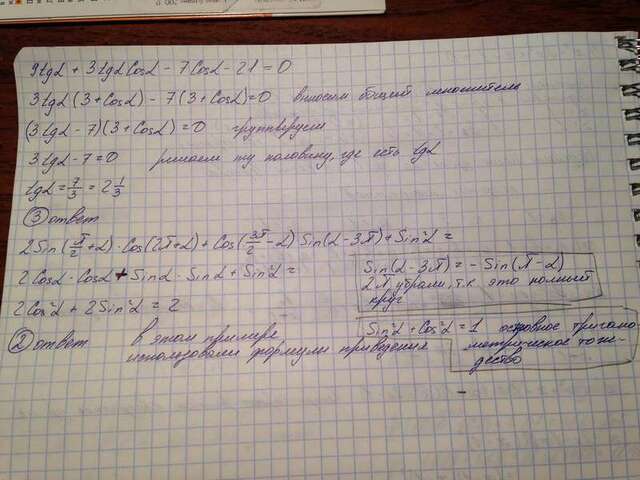 9tgα + 3tgα Cosα - 7Cosα - 21 = 0
3tgα(3+Cosα) - 7(3+Cosα)=0 вносим общий множитель
(3tgα - 7)(3+Cosα) = 0 группируем
3tgα - 7 = 0 решаем ту половину, где есть tgα
tgα = 7/3 = 2 1/3
③ ответ
2Sin(π/2+α)·Cos(2π+α)+Cos(3π/2-α)Sin(α-3π)+Sin²α =
2Cosα·Cosα + Sinα·Sinα + Sin²α =
2Cos²α + 2Sin²α = 2
② ответ в этом примере
использовали формулы приведения
Sin(α-3π) = -Sin(π-α)
2π убрали, т.к это полный
круг
Sin²α + Cos²α = 1 основное тригоно
метрическое тож-
дество